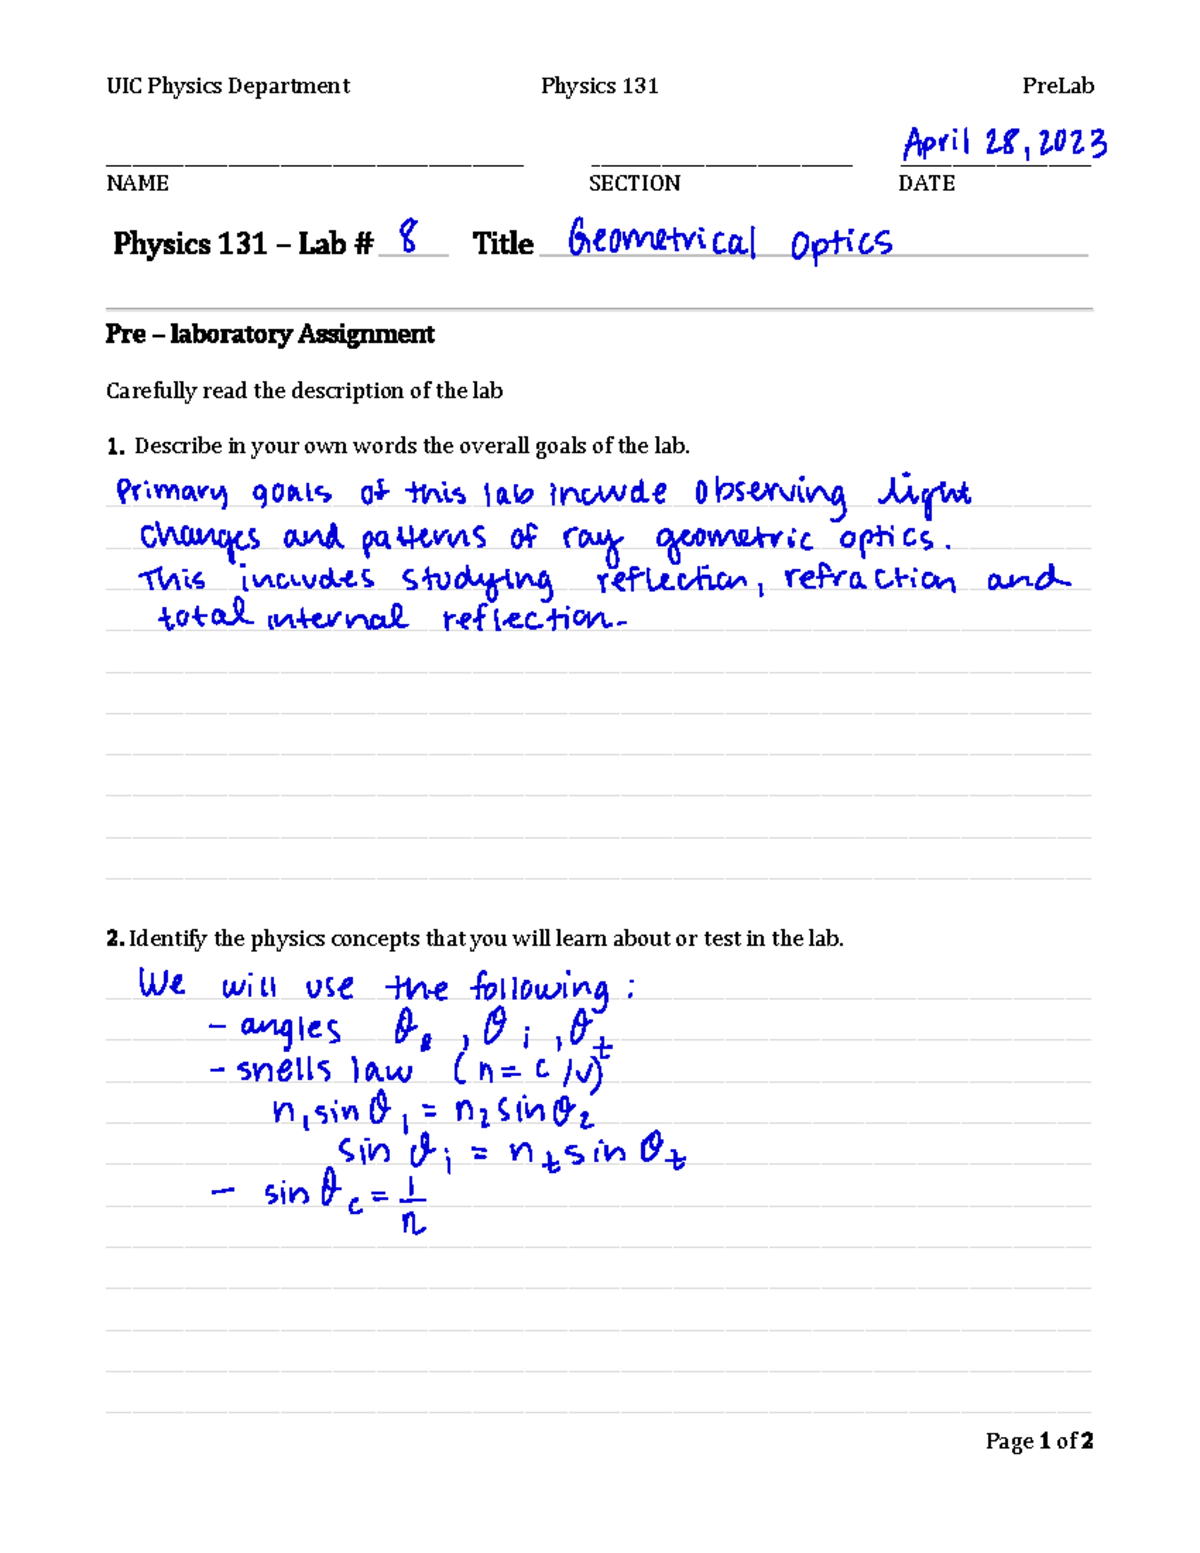 UIC Physics Department Physics 131 PreLab
April 28, 2023
NAME SECTION DATE
Physics 131 – Lab # 8 Title Geometrical Optics
Pre – laboratory Assignment
Carefully read the description of the lab
1. Describe in your own words the overall goals of the lab.
Primary goals of this lab include observing light
changes and patterns of ray geometric optics.
This includes studying reflection, refraction and
total internal reflection.
2. Identify the physics concepts that you will learn about or test in the lab.
We will use the following:
- angles θ , θi , θt
- snells law (n = c/v)
n1 sin θ1 = n2 sin θ2
sin θi = nt sin θt
- sin θc = 1/n
Page 1 of 2